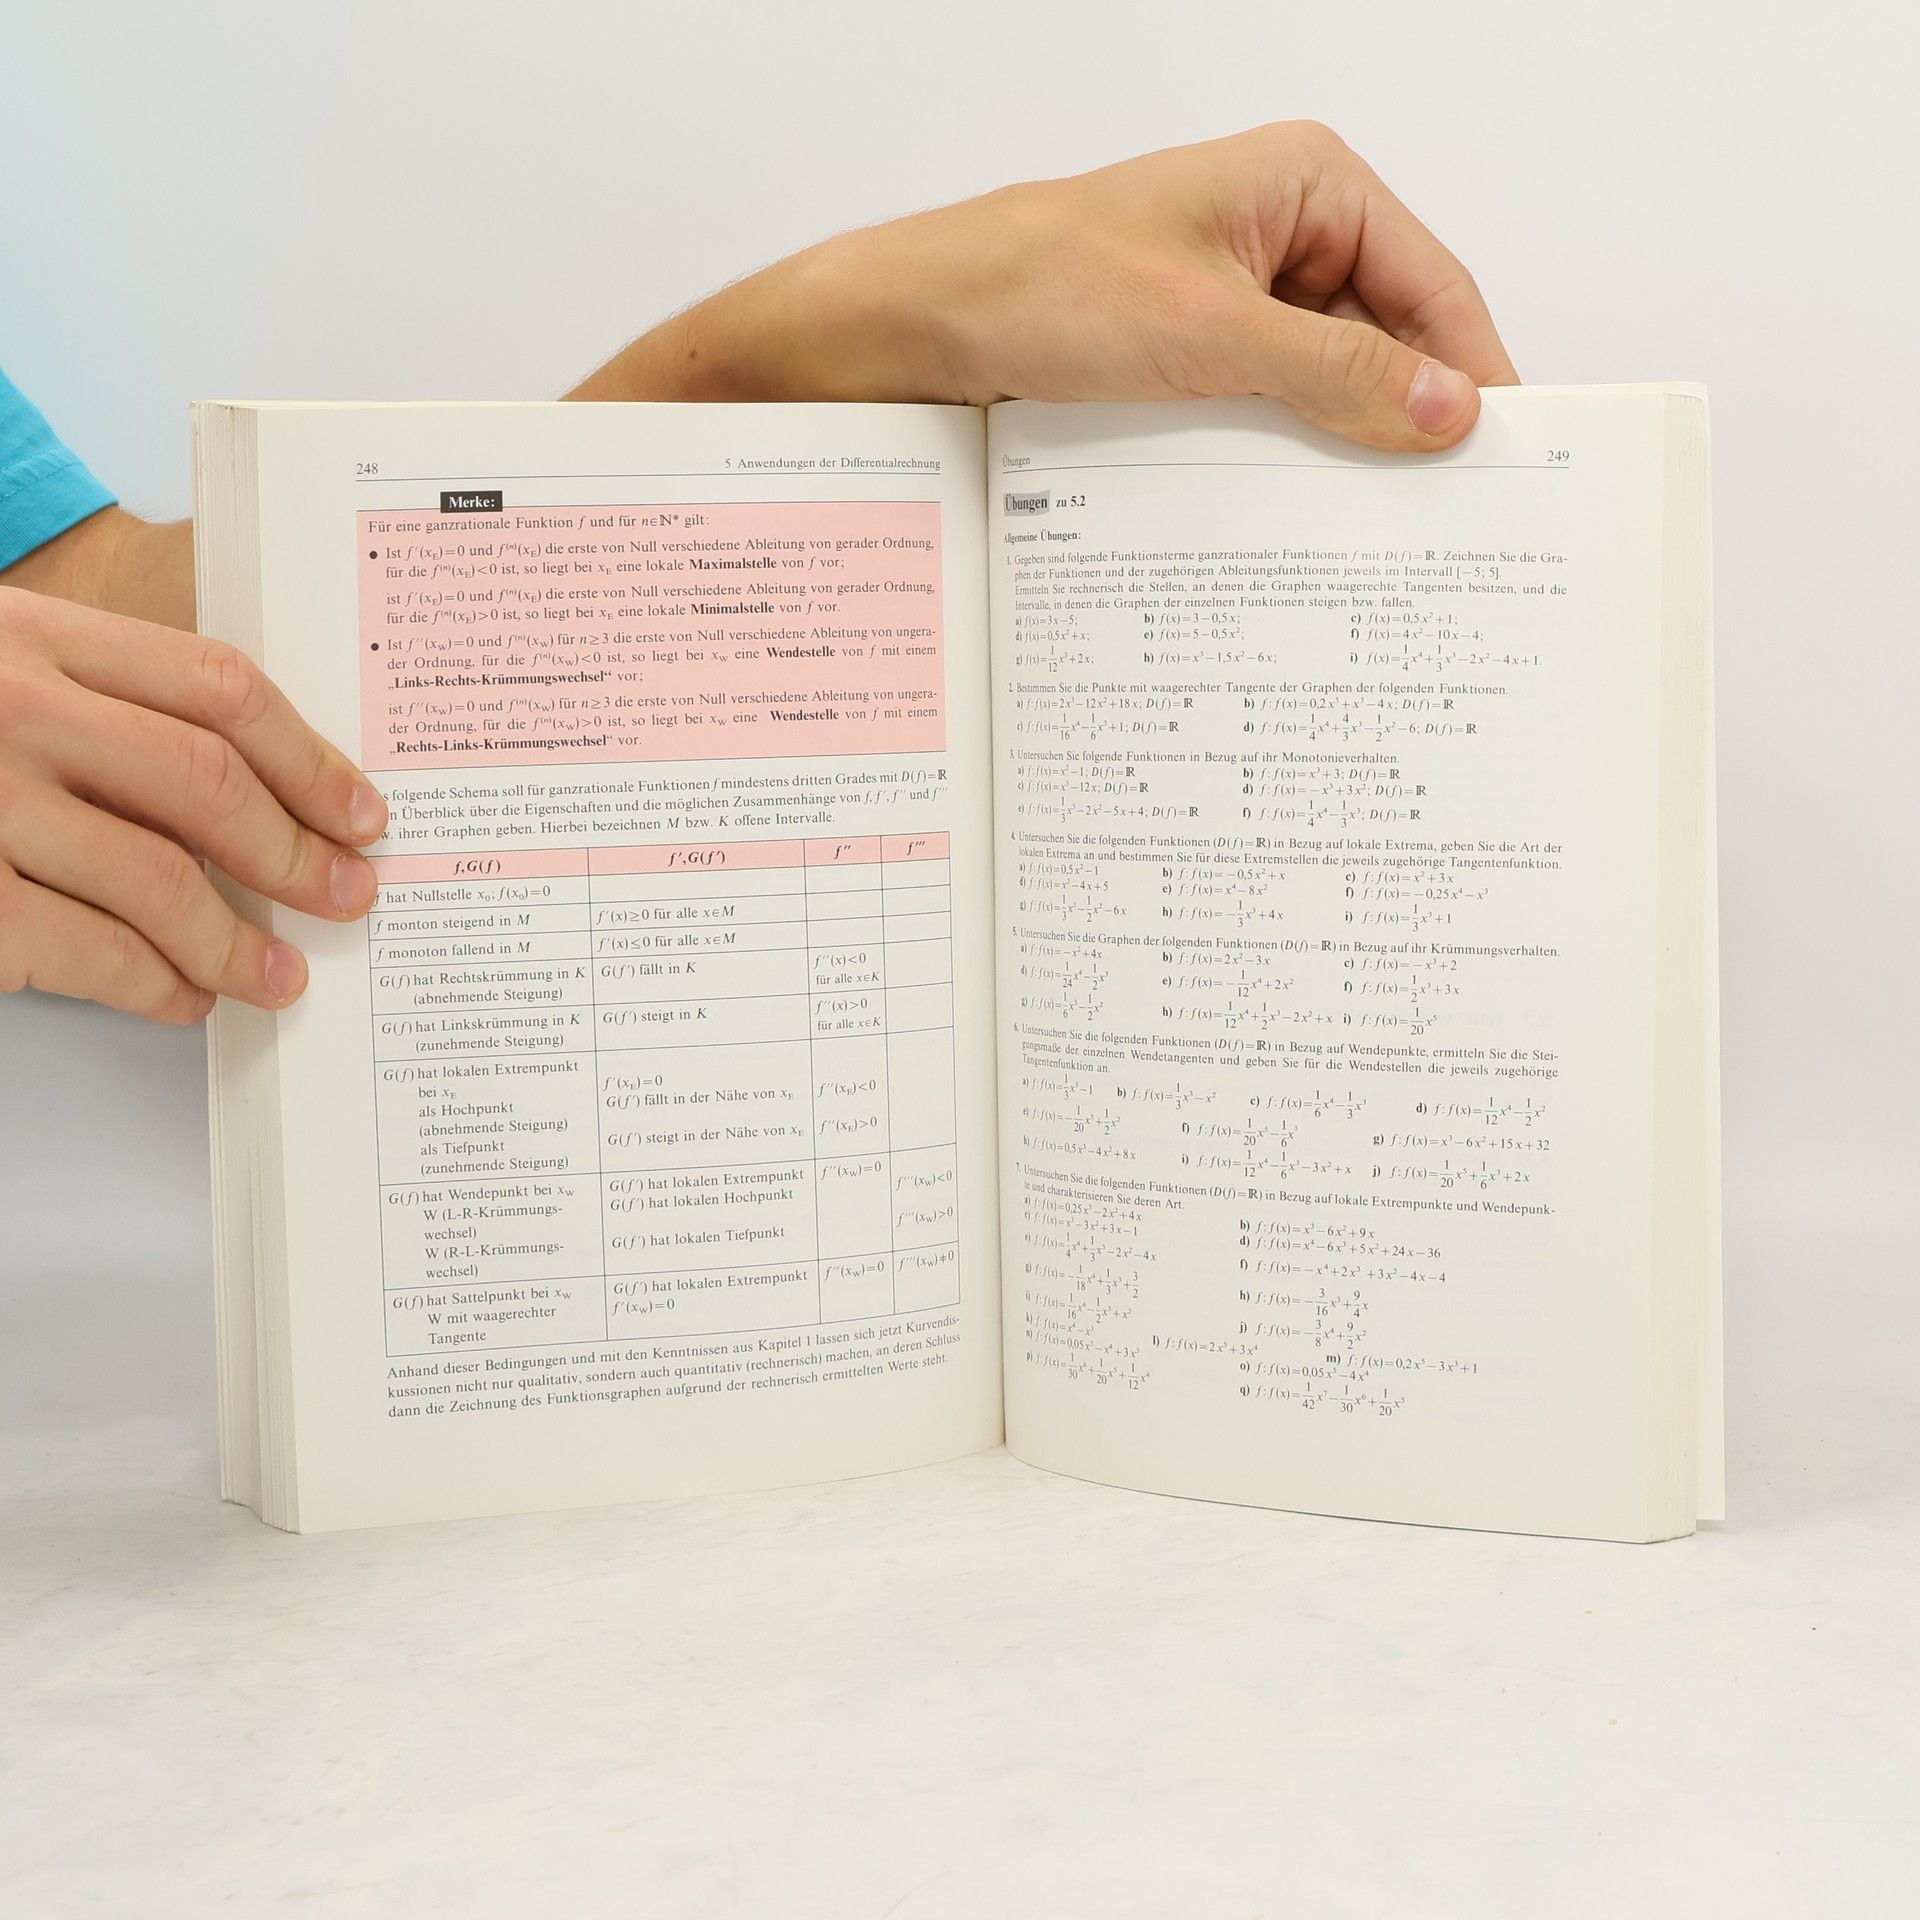 248 5 Anwendungen der Differentialrechnung
Merke:
Für eine ganzrationale Funktion f und für n∈ℕ* gilt:
● Ist f′(x_E)=0 und f⁽ⁿ⁾(x_E) die erste von Null verschiedene Ableitung von gerader Ordnung,
für die f⁽ⁿ⁾(x_E)<0 ist, so liegt bei x_E eine lokale Maximalstelle von f vor;
ist f′(x_E)=0 und f⁽ⁿ⁾(x_E) die erste von Null verschiedene Ableitung von gerader Ordnung,
für die f⁽ⁿ⁾(x_E)>0 ist, so liegt bei x_E eine lokale Minimalstelle von f vor.
● Ist f″(x_W)=0 und f⁽ⁿ⁾(x_W) für n≥3 die erste von Null verschiedene Ableitung von ungera-
der Ordnung, für die f⁽ⁿ⁾(x_W)<0 ist, so liegt bei x_W eine Wendestelle von f mit einem
„Links-Rechts-Krümmungswechsel“ vor;
ist f″(x_W)=0 und f⁽ⁿ⁾(x_W) für n≥3 die erste von Null verschiedene Ableitung von ungera-
der Ordnung, für die f⁽ⁿ⁾(x_W)>0 ist, so liegt bei x_W eine Wendestelle von f mit einem
„Rechts-Links-Krümmungswechsel“ vor.
s folgende Schema soll für ganzrationale Funktionen f mindestens dritten Grades mit D(f)=ℝ
n Überblick über die Eigenschaften und die möglichen Zusammenhänge von f, f′, f″ und f‴
w. ihrer Graphen geben. Hierbei bezeichnen M bzw. K offene Intervalle.
f, G(f) f′, G(f′) f″ f‴
f hat Nullstelle x₀; f(x₀)=0
f monton steigend in M f′(x)≥0 für alle x∈M
f monoton fallend in M f′(x)≤0 für alle x∈M
G(f) hat Rechtskrümmung in K G(f′) fällt in K f″(x)<0
(abnehmende Steigung) für alle x∈K
G(f) hat Linkskrümmung in K G(f′) steigt in K f″(x)>0
(zunehmende Steigung) für alle x∈K
G(f) hat lokalen Extrempunkt
bei x_E f′(x_E)=0
als Hochpunkt G(f′) fällt in der Nähe von x_E f″(x_E)<0
(abnehmende Steigung)
als Tiefpunkt G(f′) steigt in der Nähe von x_E f″(x_E)>0
(zunehmende Steigung)
G(f) hat Wendepunkt bei x_W G(f′) hat lokalen Extrempunkt f″(x_W)=0
W (L-R-Krümmungs- G(f′) hat lokalen Hochpunkt f‴(x_W)<0
wechsel)
W (R-L-Krümmungs- G(f′) hat lokalen Tiefpunkt f‴(x_W)>0
wechsel)
G(f) hat Sattelpunkt bei x_W G(f′) hat lokalen Extrempunkt f″(x_W)=0 f‴(x_W)≠0
W mit waagerechter f′(x_W)=0
Tangente
Anhand dieser Bedingungen und mit den Kenntnissen aus Kapitel 1 lassen sich jetzt Kurvendis-
kussionen nicht nur qualitativ, sondern auch quantitativ (rechnerisch) machen, an deren Schluss
dann die Zeichnung des Funktionsgraphen aufgrund der rechnerisch ermittelten Werte steht.
Übungen 249
Übungen zu 5.2
Allgemeine Übungen:
1. Gegeben sind folgende Funktionsterme ganzrationaler Funktionen f mit D(f)=ℝ. Zeichnen Sie die Gra-
phen der Funktionen und der zugehörigen Ableitungsfunktionen jeweils im Intervall [−5; 5].
Ermitteln Sie rechnerisch die Stellen, an denen die Graphen waagerechte Tangenten besitzen, und die
Intervalle, in denen die Graphen der einzelnen Funktionen steigen bzw. fallen.
a) f(x)=3x−5; b) f(x)=3−0,5x; c) f(x)=0,5x²+1;
d) f(x)=0,5x²+x; e) f(x)=5−0,5x²; f) f(x)=4x²−10x−4;
g) f(x)=1/12x³+2x; h) f(x)=x³−1,5x²−6x; i) f(x)=1/4x⁴+1/3x³−2x²−4x+1.
2. Bestimmen Sie die Punkte mit waagerechter Tangente der Graphen der folgenden Funktionen.
a) f:f(x)=2x³−12x²+18x; D(f)=ℝ b) f:f(x)=0,2x⁵+x³−4x; D(f)=ℝ
c) f:f(x)=1/16x⁴−1/6x³+1; D(f)=ℝ d) f:f(x)=1/4x⁴+4/3x³−1/2x²−6; D(f)=ℝ
3. Untersuchen Sie folgende Funktionen in Bezug auf ihr Monotonieverhalten.
a) f:f(x)=x²−1; D(f)=ℝ b) f:f(x)=x³+3; D(f)=ℝ
c) f:f(x)=x³−12x; D(f)=ℝ d) f:f(x)=−x³+3x²; D(f)=ℝ
e) f:f(x)=1/3x³−2x²−5x+4; D(f)=ℝ f) f:f(x)=1/4x⁴−1/3x³; D(f)=ℝ
4. Untersuchen Sie die folgenden Funktionen (D(f)=ℝ) in Bezug auf lokale Extrema, geben Sie die Art der
lokalen Extrema an und bestimmen Sie für diese Extremstellen die jeweils zugehörige Tangentenfunktion.
a) f:f(x)=0,5x²−1 b) f:f(x)=−0,5x²+x c) f:f(x)=x²+3x
d) f:f(x)=x²−4x+5 e) f:f(x)=x⁴−8x² f) f:f(x)=−0,25x⁴−x³
g) f:f(x)=1/3x³−1/2x²−6x h) f:f(x)=−1/3x³+4x i) f:f(x)=1/3x³+1
5. Untersuchen Sie die Graphen der folgenden Funktionen (D(f)=ℝ) in Bezug auf ihr Krümmungsverhalten.
a) f:f(x)=−x²+4x b) f:f(x)=2x²−3x c) f:f(x)=−x³+2
d) f:f(x)=1/24x⁴−1/2x³ e) f:f(x)=−1/12x⁴+2x² f) f:f(x)=1/2x³+3x
g) f:f(x)=1/6x³−1/2x² h) f:f(x)=1/12x⁴+1/2x³−2x²+x i) f:f(x)=1/20x⁵
6. Untersuchen Sie die folgenden Funktionen (D(f)=ℝ) in Bezug auf Wendepunkte, ermitteln Sie die Stei-
gungsmaße der einzelnen Wendetangenten und geben Sie für die Wendestellen die jeweils zugehörige
Tangentenfunktion an.
a) f:f(x)=1/3x³−1 b) f:f(x)=1/3x³−x² c) f:f(x)=1/6x⁴−1/3x³ d) f:f(x)=1/12x⁴−1/2x²
e) f:f(x)=−1/20x⁵+1/2x² f) f:f(x)=1/20x⁵−1/6x³ g) f:f(x)=x³−6x²+15x+32
h) f:f(x)=0,5x³−4x²+8x i) f:f(x)=1/12x⁴−1/6x³−3x²+x j) f:f(x)=1/20x⁵+1/6x³+2x
7. Untersuchen Sie die folgenden Funktionen (D(f)=ℝ) in Bezug auf lokale Extrempunkte und Wendepunk-
te und charakterisieren Sie deren Art.
a) f:f(x)=0,25x³−2x²+4x b) f:f(x)=x³−6x²+9x
c) f:f(x)=x³−3x²+3x−1 d) f:f(x)=x⁴−6x³+5x²+24x−36
e) f:f(x)=1/4x⁴+1/3x³−2x²−4x f) f:f(x)=−x⁴+2x³+3x²−4x−4
g) f:f(x)=−1/18x⁴+1/3x³+3/2 h) f:f(x)=−3/16x³+9/4x
i) f:f(x)=1/16x⁴−1/2x³+x² j) f:f(x)=−3/8x⁴+9/2x²
k) f:f(x)=x⁴−x³ l) f:f(x)=2x⁵+3x⁴ m) f:f(x)=0,2x⁵−3x³+1
n) f:f(x)=0,05x⁵−x⁴+3x³ o) f:f(x)=0,05x⁵−4x⁴
p) f:f(x)=1/30x⁶+1/20x⁵+1/12x⁴ q) f:f(x)=1/42x⁷−1/30x⁶+1/20x⁵